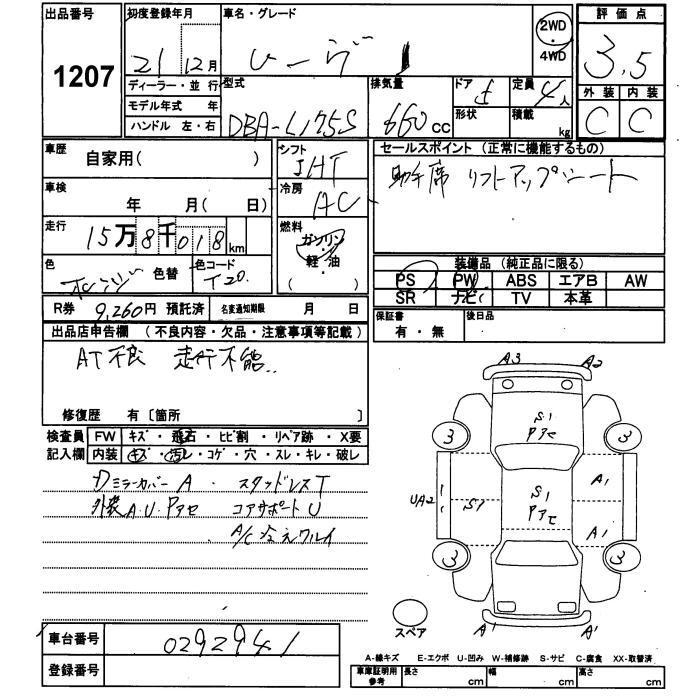 出品番号
1207
初度登録年月
21 12月
ディーラー・並 行
モデル年式 年
ハンドル 左・右
車名・グレード
ムーヴ
2WD
4WD
型式
DBA-L175S
排気量
660 CC
ドア
5
形状
定員
4人
積載
kg
評価点
3.5
外装 内装
C C
車歴
自家用( )
車検
年 月( 日)
走行
15万8千018km
色
色替
色コード
T20
シフト
IAT
冷房
AC
燃料
ガソリン
軽・油
( )
セールスポイント (正常に機能するもの)
助手席 リフトアップシート
装備品 (純正品に限る)
PS PW ABS エアB AW
SR ナビ TV 本革
保証書
有・無
後日品
R券 9,260円 預託済 名変通知期限 月 日
出品店申告欄 (不良内容・欠品・注意事項等記載)
AT不良 走行不能
修復歴 有〔箇所 〕
検査員 FW キズ・飛石・ヒビ割・リペア跡・X要
記入欄 内装 キズ・汚レ・コゲ・穴・スレ・キレ・破レ
Dミラーカバー A スタッドレスT
外装 A.U.Pアセ コアサポートU
A/C冷えワルイ
車台番号 0292941
登録番号
A3 A2
S1
Pアセ
3 3
UA2
S1
S1
Pアセ
A1
A1
3 3
A1 A1
スペア
A-線キズ E-エクボ U-凹み W-補修跡 S-サビ C-腐食 XX-取替済
車庫証明用
参考
長さ cm 幅 cm 高さ cm